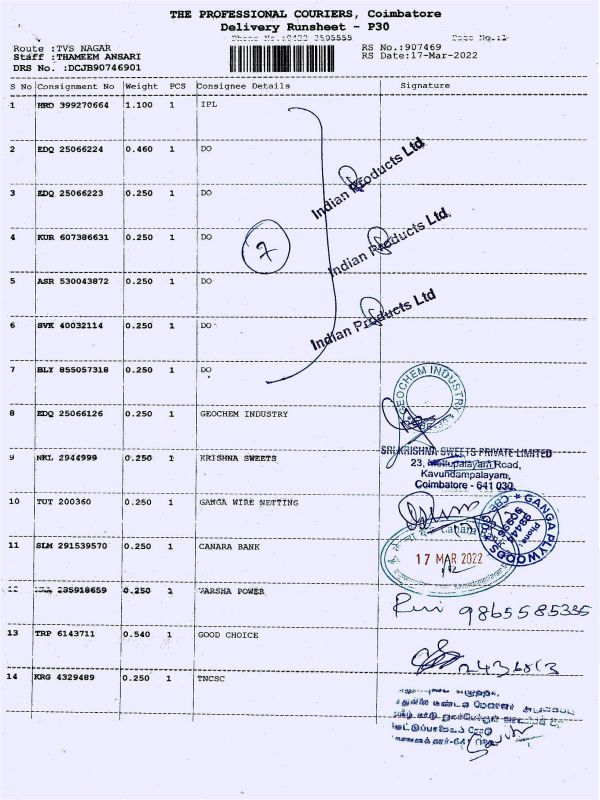 THE PROFESSIONAL COURIERS, Coimbatore
Delivery Runsheet - P30
Route :TVS NAGAR
RS No.:907469
Staff :THAMEEM ANSARI
RS Date:17-Mar-2022
DRS No. :DCJB90746901
S No Consignment No Weight PCS Consignee Details Signature
1 HRD 399270664 1.100 1 IPL
2 EDQ 25066224 0.460 1 DO
Indian Products Ltd
3 EDQ 25066223 0.250 1 DO
4 KUR 607386631 0.250 1 DO
7
Indian Products Ltd.
5 ASR 530043872 0.250 1 DO
6 SVK 40032114 0.250 1 DO
Indian Products Ltd
7 BLY 855057318 0.250 1 DO
GEOCHEM INDUSTRY
8 EDQ 25066126 0.250 1 GEOCHEM INDUSTRY
SRI KRISHNA SWEETS PRIVATE LIMITED
9 NKL 2944999 0.250 1 KRISHNA SWEETS
23, Mettupalayam Road,
Kavundampalayam,
Coimbatore - 641 030.
10 TUT 200360 0.250 1 GANGA WIRE NETTING
GANGA PLYWOODS
Phone:
11 SLM 291539570 0.250 1 CANARA BANK
17 MAR 2022
235918659 0.250 1 VARSHA POWER
9865585335
13 TRP 6143711 0.540 1 GOOD CHOICE
14 KRG 4329489 0.250 1 TNCSC